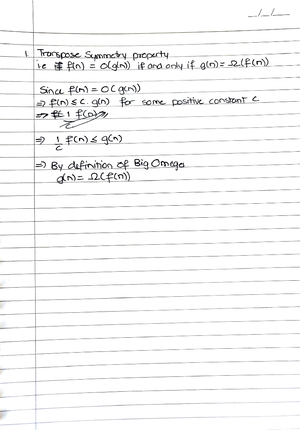 __/__/__
1. Transpose Symmetry property
i.e f(n) = O(g(n)) if and only if g(n) = Ω(f(n))
Since f(n) = O(g(n))
⇒ f(n) ≤ c. g(n) for some positive constant c
⇒ 1/c f(n) ≤ g(n)
⇒ By definition of Big Omega
g(n) = Ω(f(n))